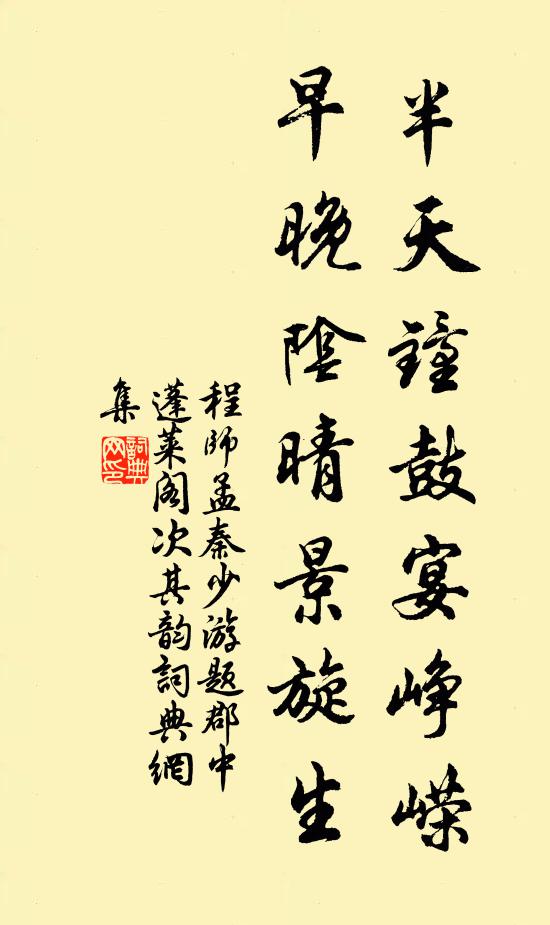 半天鐘鼓宴崢嶸
早晚陰晴景旋生
程師孟秦少游題郡中
蓬萊閣次其韵詞典網
集
詞典網印